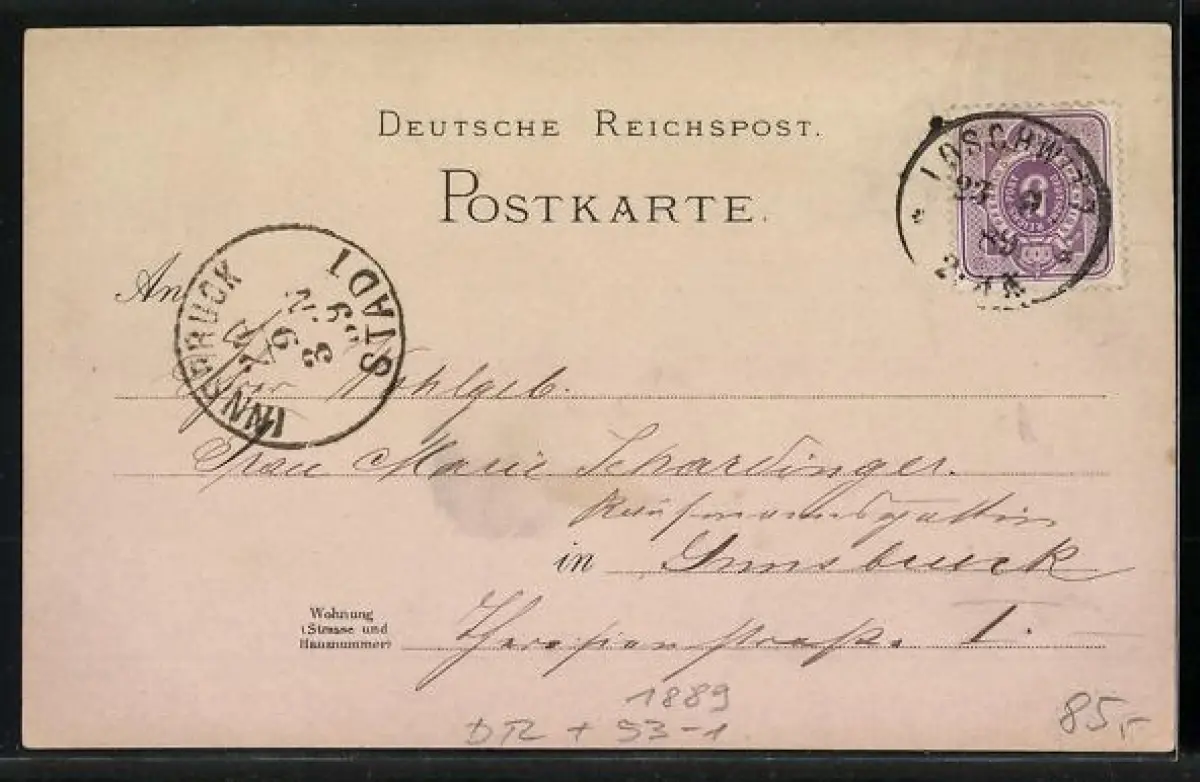 DEUTSCHE REICHSPOST.
POSTKARTE.
LOSCHWITZ
89
INNSBRUCK
STADT
An
Wohlgeb.
Frau Marie Schardinger.
Kaufmannsgattin
in Innsbruck
Wohnung
(Strasse und
Hausnummer)
Theresienstraße I.
1889
85,-